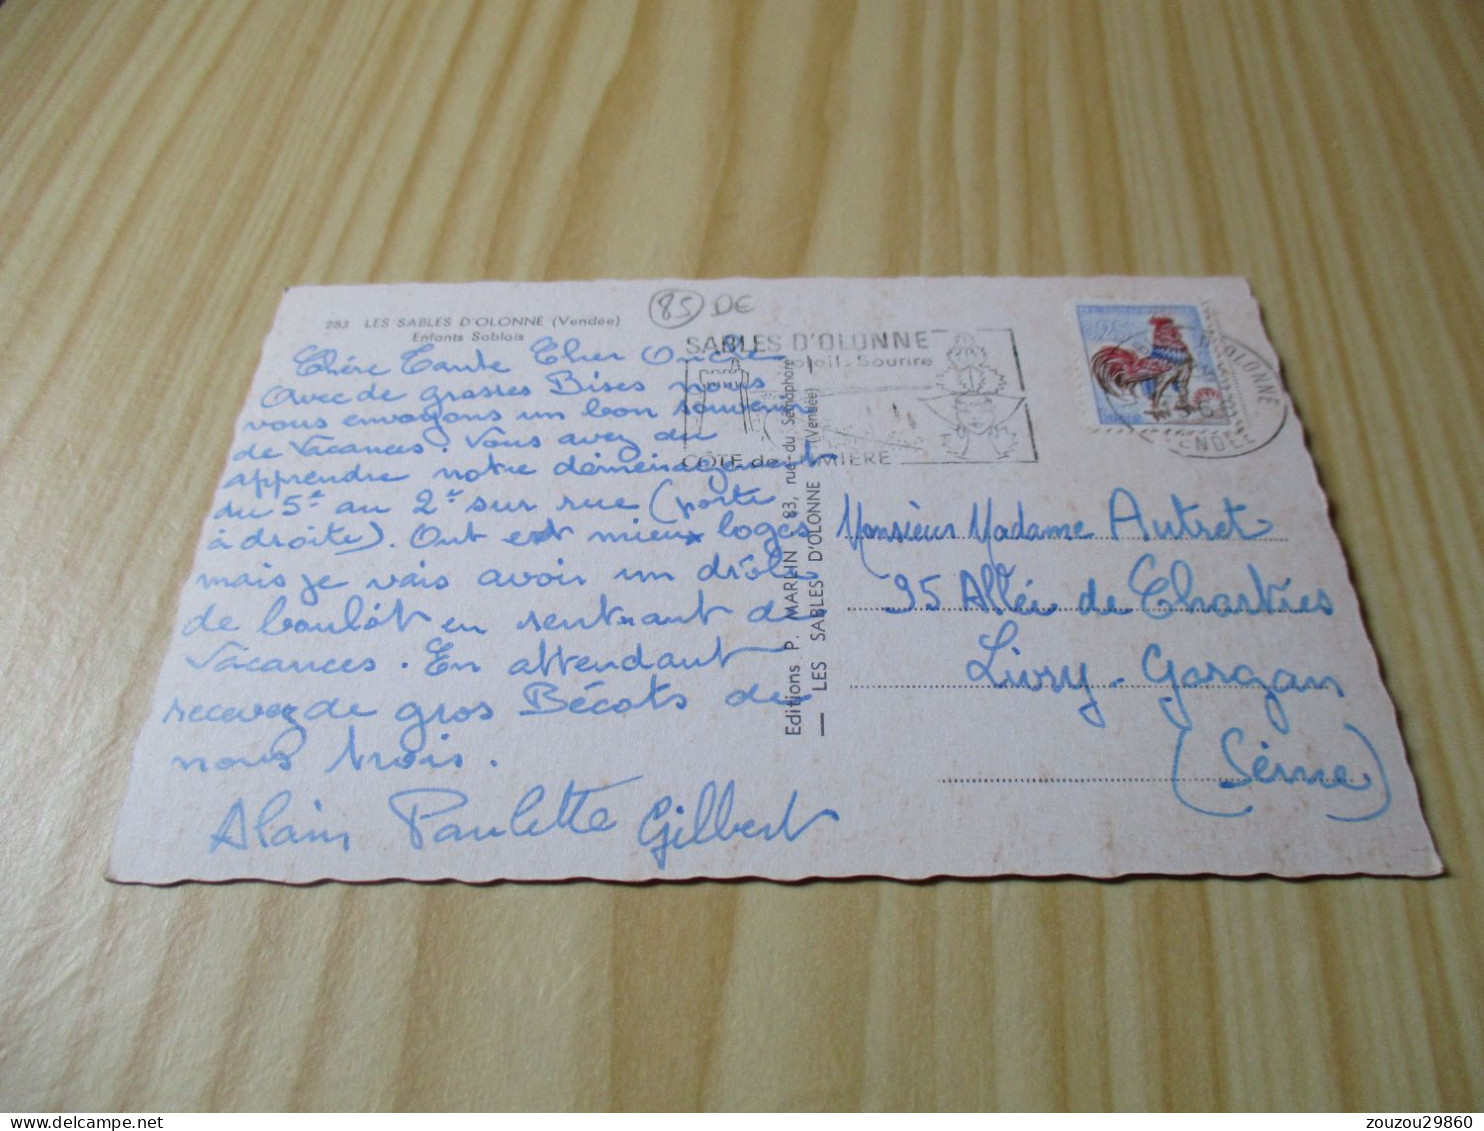 283 LES SABLES D'OLONNE (Vendée)
Enfants Sablais
85 DE
Chére Tante Cher Oncle
Avec de grosses Bises nous
vous envoyons un bon souvenir
de Vacances. Vous avez du
apprendre notre déménagement
du 5e au 2e sur rue (porte
à droite). Ont est mieux logés
mais je vais avoir un drôle
de boulôt en rentrant de
Vacances. En attendant
recevez de gros Bécots de
nous trois.
Alain Paulette Gilbert
SABLES D'OLONNE
Soleil. Sourire
CÔTE de LUMIÈRE
OLONNE
VENDÉE
Editions P. MARLIN 83, rue du Sémaphore
— LES SABLES D'OLONNE (Vendée)
Monsieur Madame Autret
95 Alléi de Chartres
Livry-Gargan
(Seine)
zouzou29860